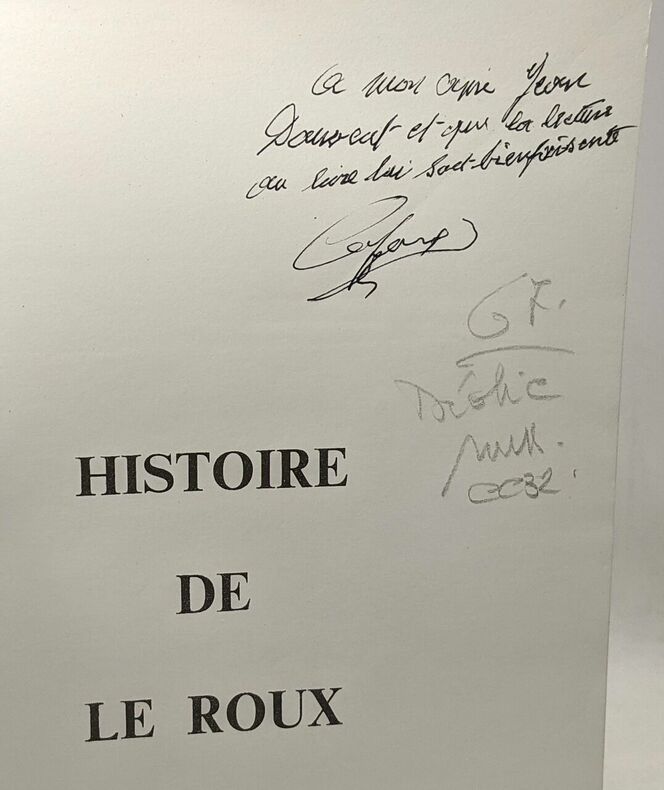 A mon amie Jean
et que la lecture
du livre lui soit bienfaisante
67.
Dédic
HISTOIRE
DE
LE ROUX